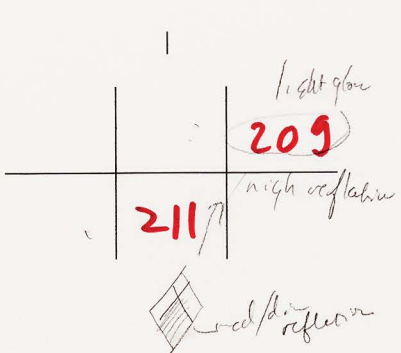 light glow
209
high reflation
211
med/dim
reflection